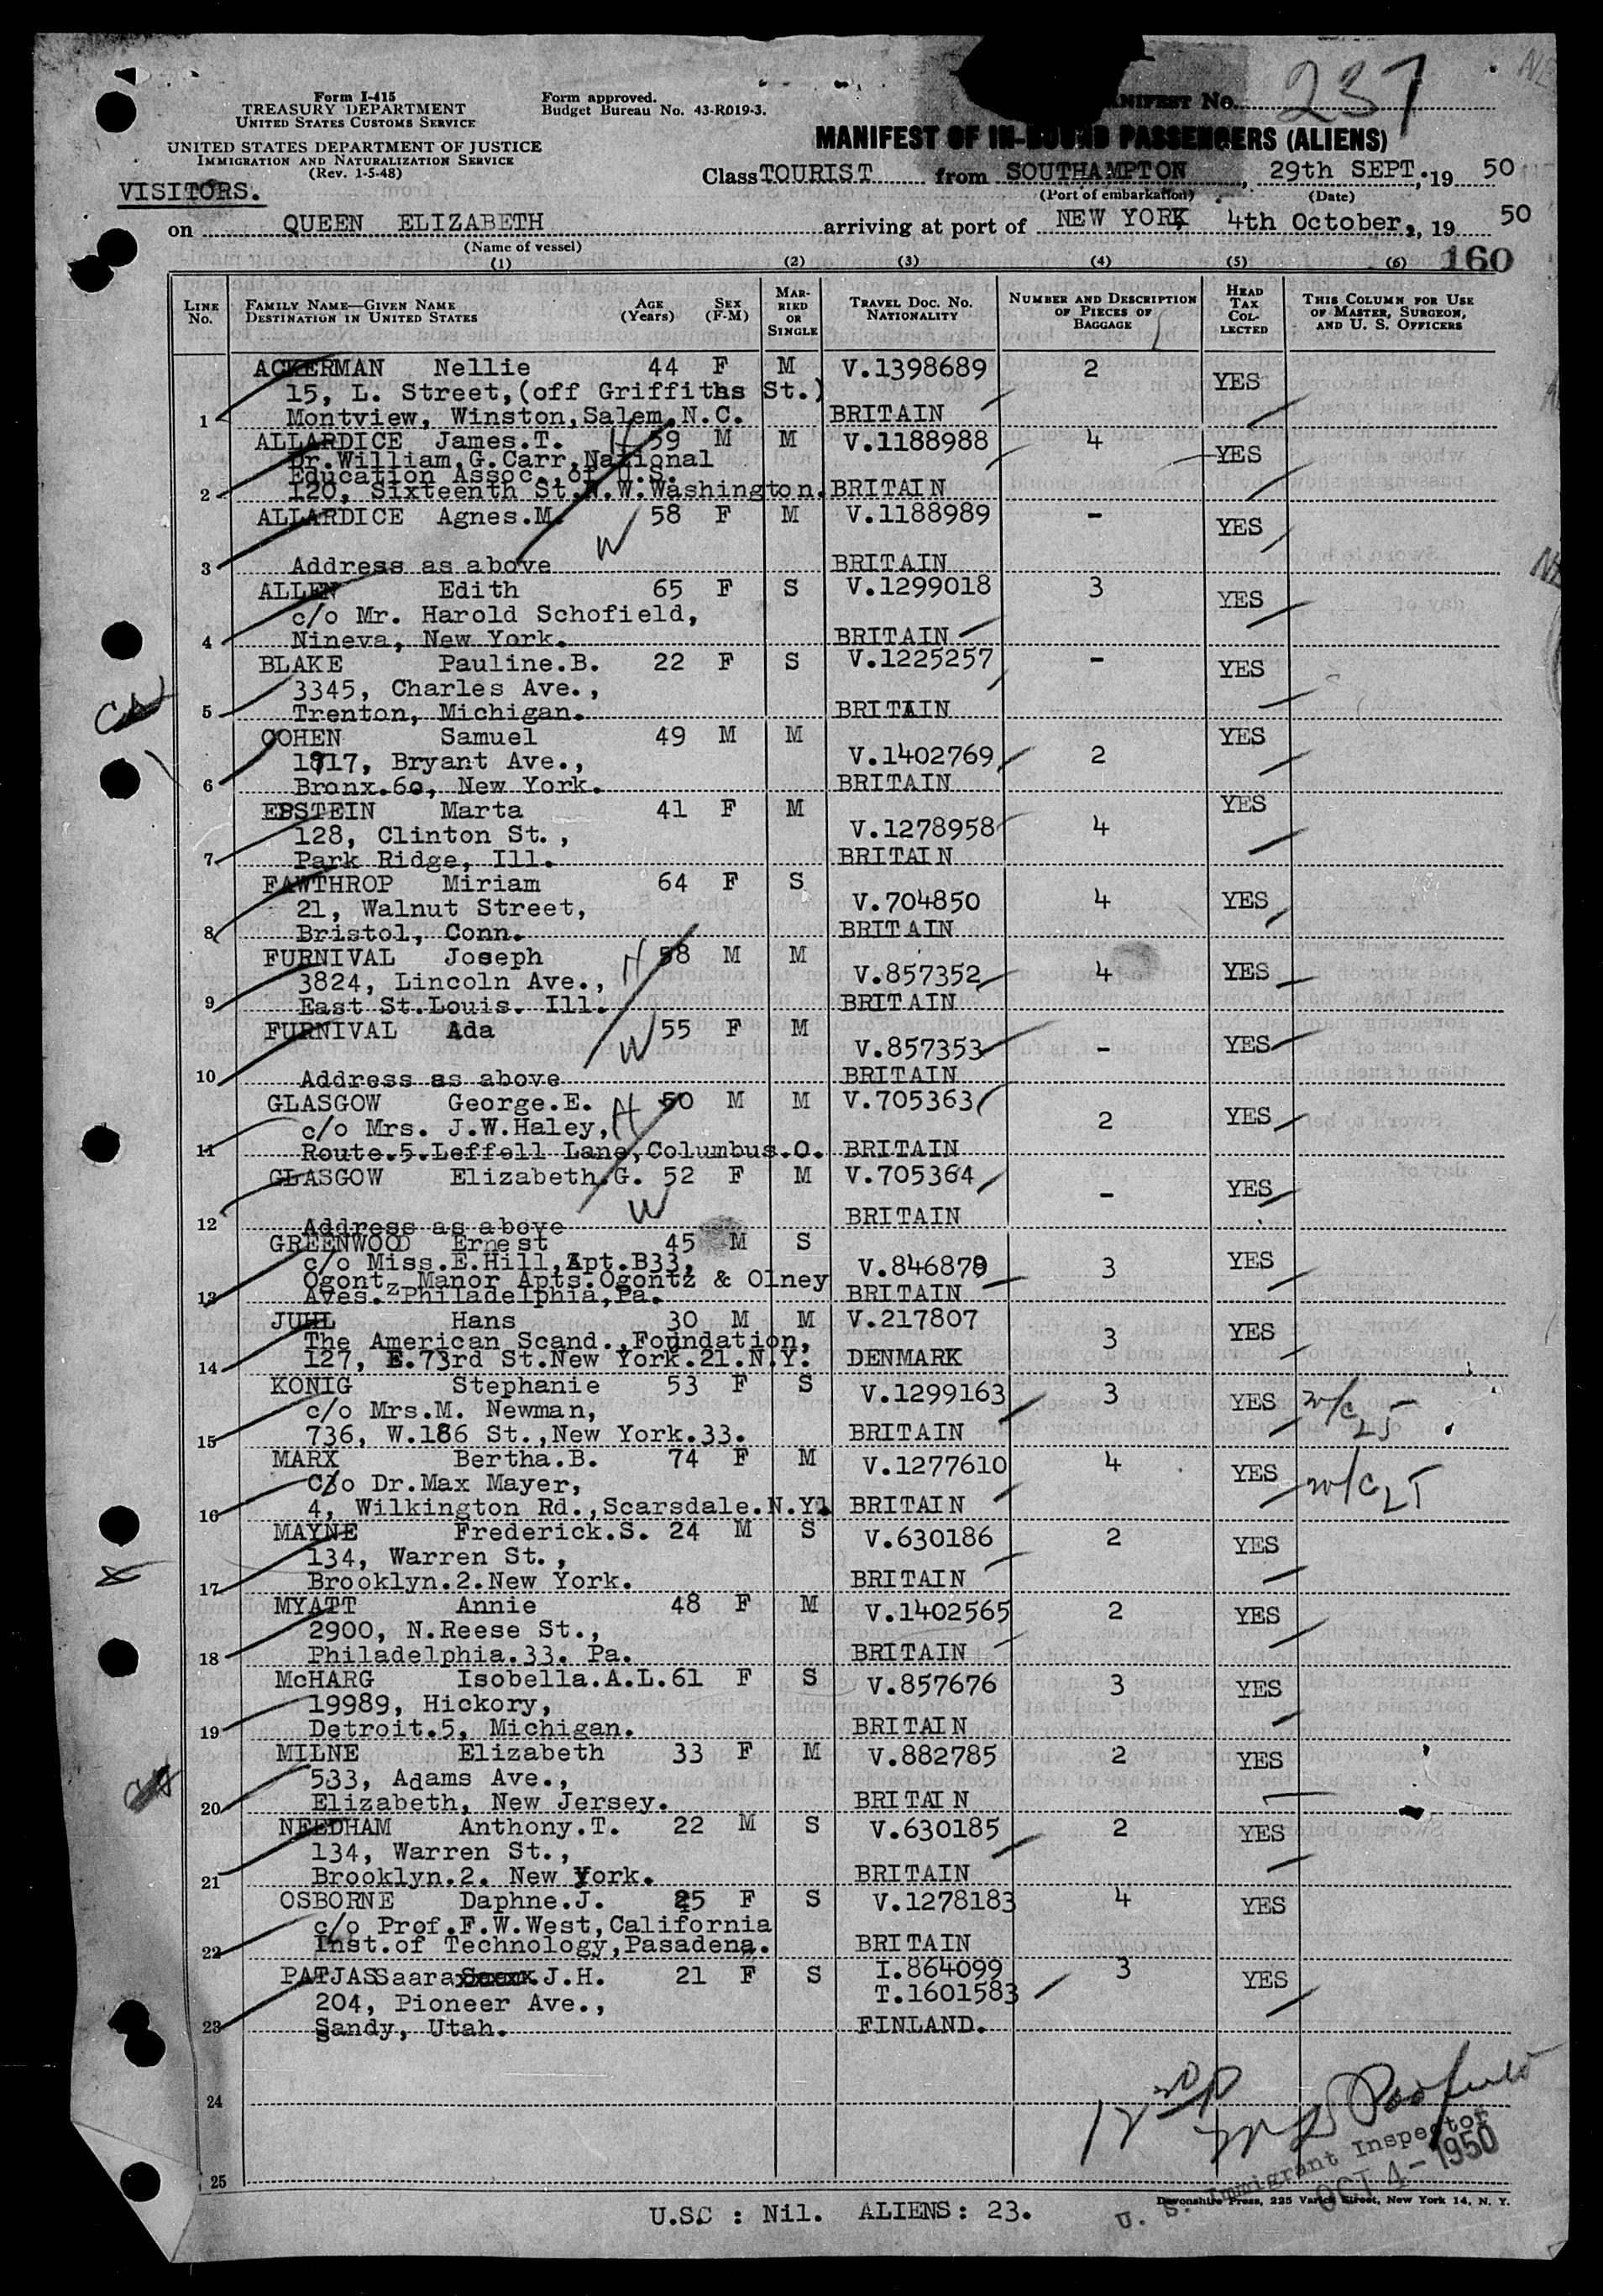 Form I-415
TREASURY DEPARTMENT
UNITED STATES CUSTOMS SERVICE
UNITED STATES DEPARTMENT OF JUSTICE
IMMIGRATION AND NATURALIZATION SERVICE
(Rev. 1-5-48)
Form approved.
Budget Bureau No. 43-R019-3.
MANIFEST No. 237
MANIFEST OF IN-BOUND PASSENGERS (ALIENS)
VISITORS.
Class TOURIST from SOUTHAMPTON, 29th SEPT. 19 50
(Port of embarkation) (Date)
on QUEEN ELIZABETH arriving at port of NEW YORK 4th October, 19 50
(Name of vessel)
160
(1) (2) (3) (4) (5) (6)
LINE No. FAMILY NAME—GIVEN NAME DESTINATION IN UNITED STATES AGE (Years) SEX (F-M) MARRIED OR SINGLE TRAVEL DOC. NO. NATIONALITY NUMBER AND DESCRIPTION OF PIECES OF BAGGAGE HEAD TAX COLLECTED THIS COLUMN FOR USE OF MASTER, SURGEON, AND U. S. OFFICERS
ACKERMAN Nellie 44 F M V.1398689 2 YES
15, L. Street,(off Griffiths St.)
1 Montview, Winston,Salem.N.C. BRITAIN
ALLARDICE James.T. H 59 M M V.1188988 4 YES
Dr.William.G.Carr,National
Education Assoc.,of U.S.
2 120, Sixteenth St.N.W.Washington. BRITAIN
ALLARDICE Agnes.M. W 58 F M V.1188989 - YES
3 Address as above BRITAIN
ALLEN Edith 65 F S V.1299018 3 YES
c/o Mr. Harold Schofield,
4 Nineva, New York. BRITAIN
BLAKE Pauline.B. 22 F S V.1225257 - YES
3345, Charles Ave.,
5 Trenton, Michigan. BRITAIN
COHEN Samuel 49 M M V.1402769 2 YES
1917, Bryant Ave.,
6 Bronx.60, New York. BRITAIN
EPSTEIN Marta 41 F M V.1278958 4 YES
128, Clinton St.,
7 Park Ridge, Ill. BRITAIN
FAWTHROP Miriam 64 F S V.704850 4 YES
21, Walnut Street,
8 Bristol, Conn. BRITAIN
FURNIVAL Joseph H 58 M M V.857352 4 YES
3824, Lincoln Ave.,
9 East St.Louis. Ill. BRITAIN
FURNIVAL Ada W 55 F M V.857353 - YES
10 Address as above BRITAIN
GLASGOW George.E. H 50 M M V.705363 2 YES
c/o Mrs. J.W.Haley,
11 Route.5.Leffell Lane,Columbus.O. BRITAIN
GLASGOW Elizabeth.G. 52 F M V.705364 - YES
W
12 Address as above BRITAIN
GREENWOOD Ernest 45 M S V.846879 3 YES
c/o Miss.E.Hill,Apt.B33,
Ogontz Manor Apts.Ogontz & Olney
13 Aves. Philadelphia,Pa. BRITAIN
JUHL Hans 30 M M V.217807 3 YES
The American Scand.,Foundation,
14 127, E.73rd St.New York.21.N.Y. DENMARK
KONIG Stephanie 53 F S V.1299163 3 YES
c/o Mrs.M. Newman,
15 736, W.186 St.,New York.33. BRITAIN
MARX Bertha.B. 74 F M V.1277610 4 YES
C/o Dr.Max Mayer,
16 4, Wilkington Rd.,Scarsdale.N.Y. BRITAIN
MAYNE Frederick.S. 24 M S V.630186 2 YES
134, Warren St.,
17 Brooklyn.2.New York. BRITAIN
MYATT Annie 48 F M V.1402565 2 YES
2900, N.Reese St.,
18 Philadelphia.33. Pa. BRITAIN
McHARG Isobella.A.L. 61 F S V.857676 3 YES
19989, Hickory,
19 Detroit.5, Michigan. BRITAIN
MILNE Elizabeth 33 F M V.882785 2 YES
533, Adams Ave.,
20 Elizabeth, New Jersey. BRITAIN
NEEDHAM Anthony.T. 22 M S V.630185 2 YES
134, Warren St.,
21 Brooklyn.2. New York. BRITAIN
OSBORNE Daphne.J. 25 F S V.1278183 4 YES
c/o Prof.F.W.West,California
22 Inst.of Technology,Pasadena. BRITAIN
PATJAS Saara J.H. 21 F S I.864099 3 YES
T.1601583
204, Pioneer Ave.,
23 Sandy, Utah. FINLAND.
24
25
U. S. Immigrant Inspector
OCT 4-1950
Devonshire Press, 225 Varick Street, New York 14, N. Y.
U.S.C : Nil. ALIENS: 23.